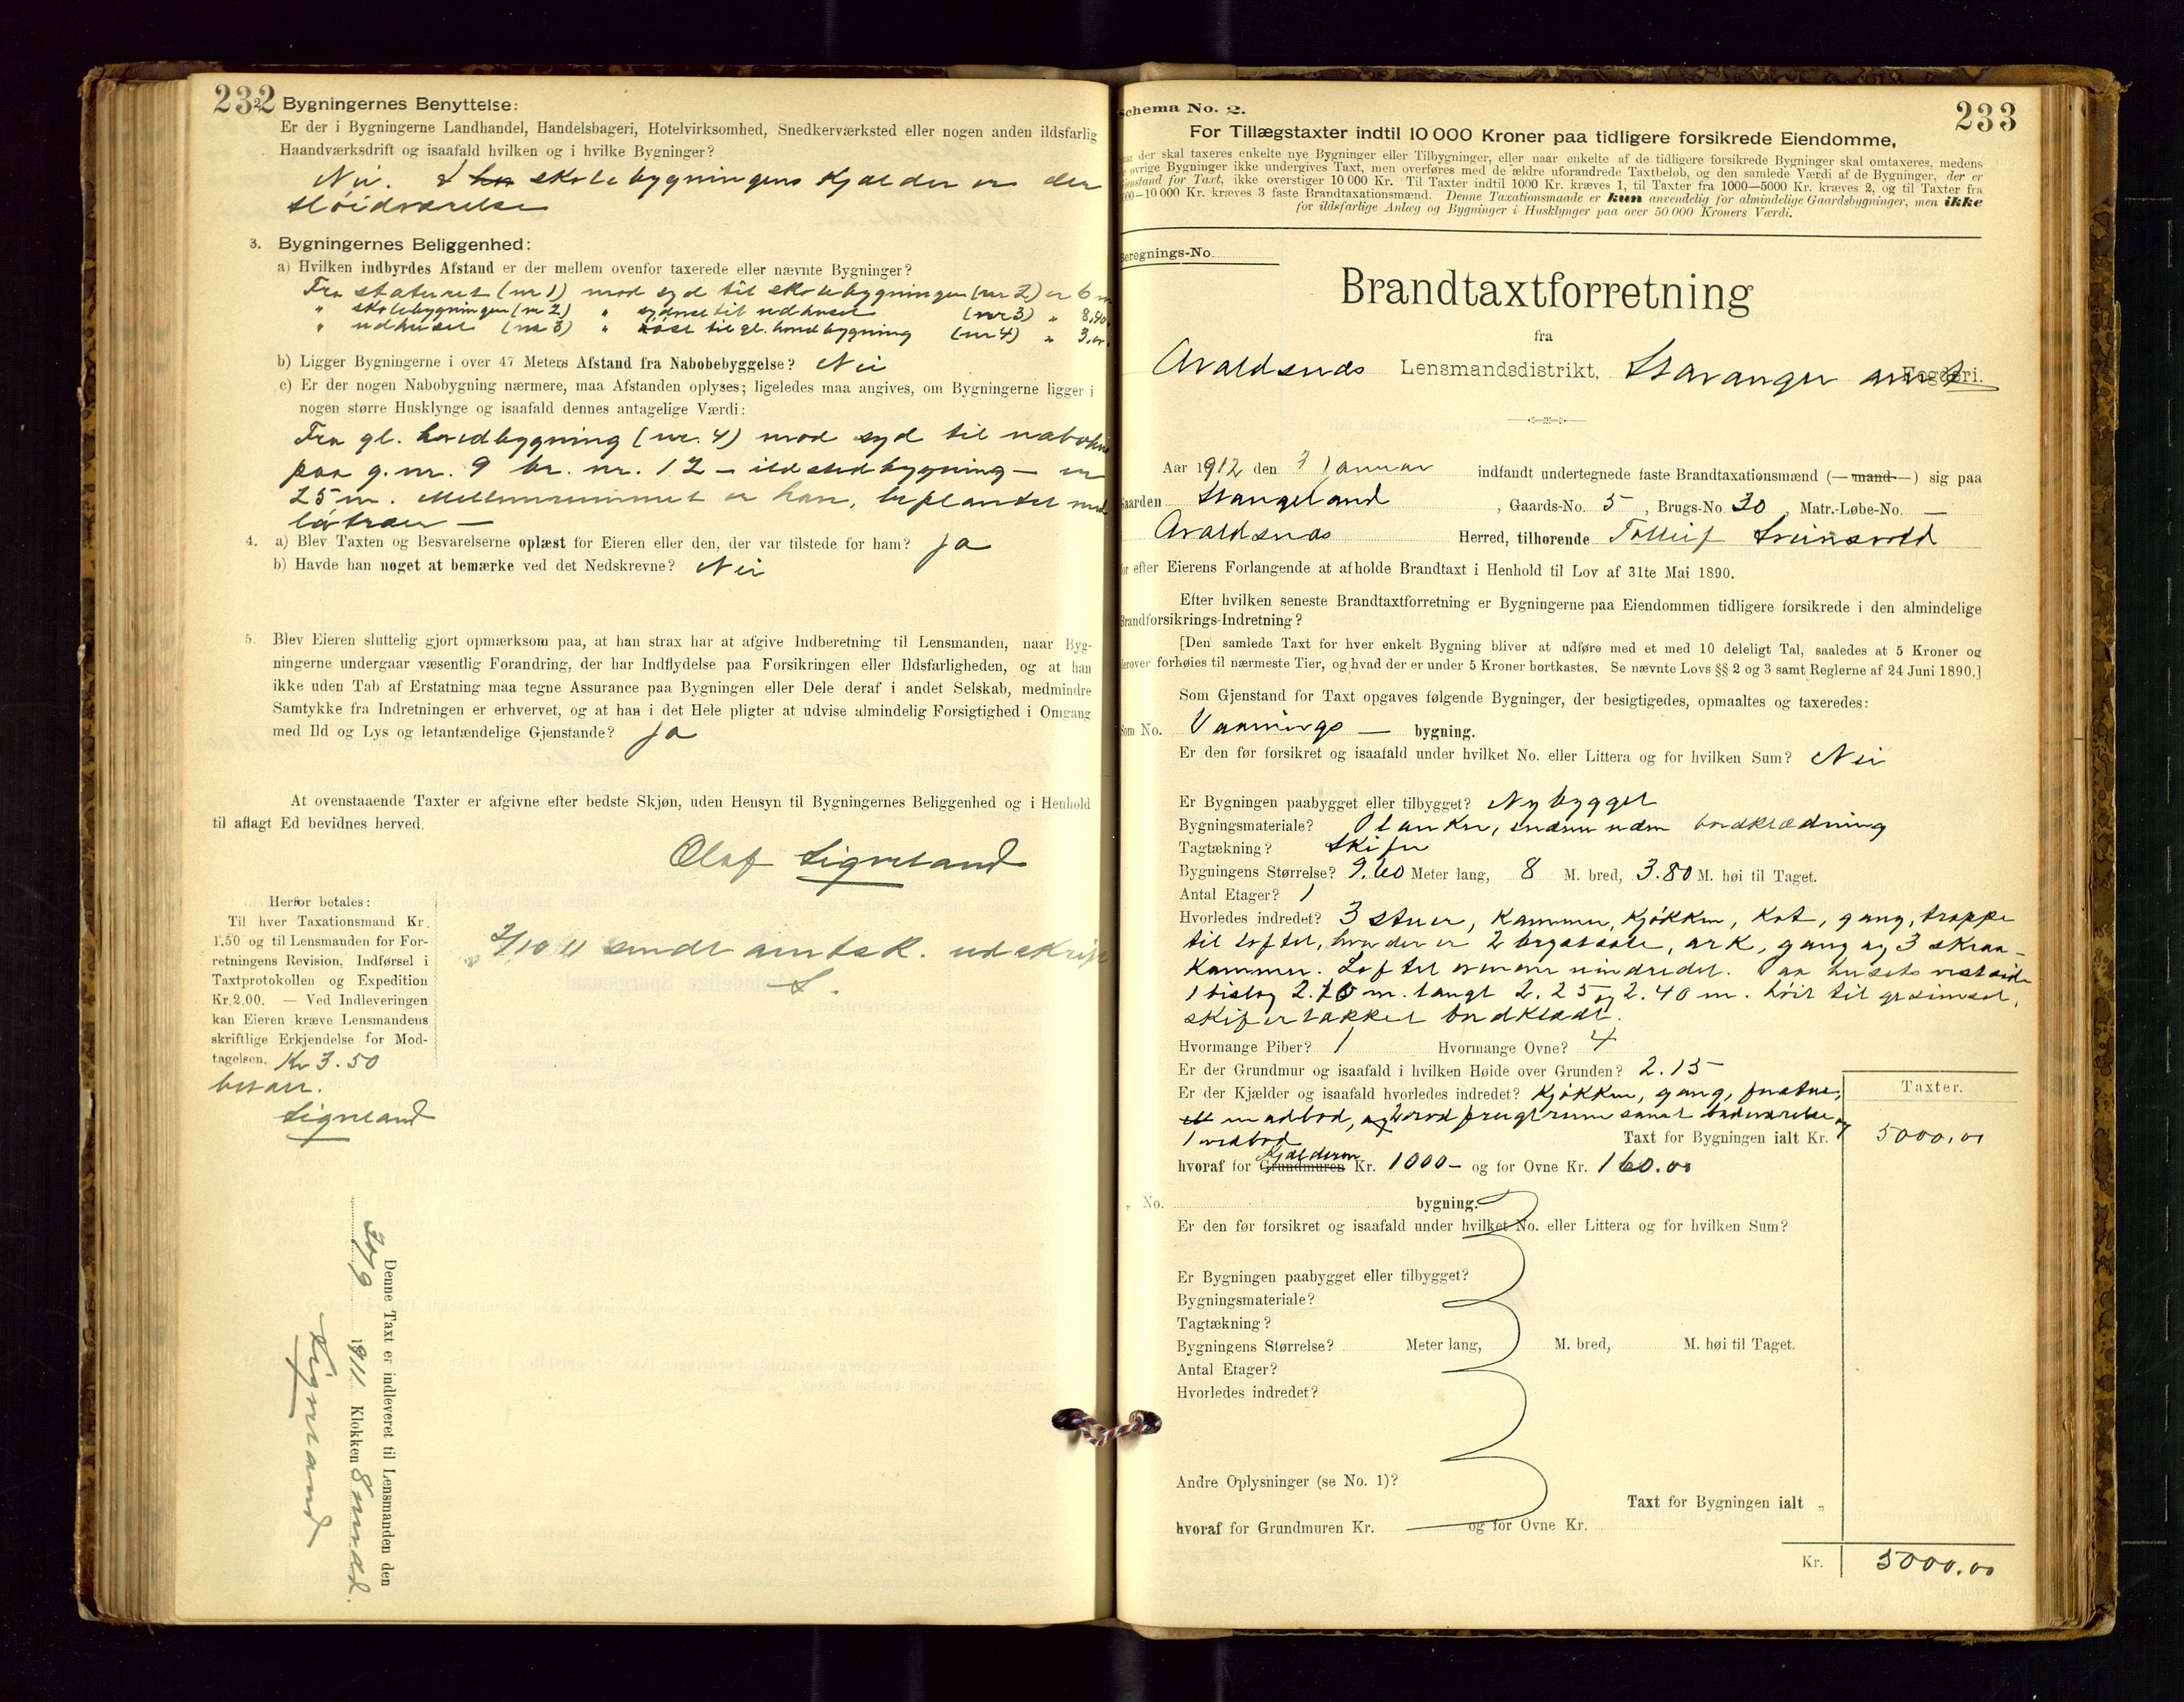 232
2 Bygningernes Benyttelse:
Er der i Bygningerne Landhandel, Handelsbageri, Hotelvirksomhed, Snedkerværksted eller nogen anden ildsfarlig
Haandværksdrift og isaafald hvilken og i hvilke Bygninger?
Nei. I skolebygningens Kjælder er der
sløidværelse
3. Bygningernes Beliggenhed:
a) Hvilken indbyrdes Afstand er der mellem ovenfor taxerede eller nævnte Bygninger?
Fra staburet (nr 1) mod syd til skolebygningen (nr 2) er 6 m
" skolebygningen (nr 2) " sydvest til udhuset (nr 3) " 8,40
" udhuset (nr 3) " øst til gl. hovedbygning (nr 4) " 3.00
b) Ligger Bygningerne i over 47 Meters Afstand fra Nabobebyggelse? Nei
c) Er der nogen Nabobygning nærmere, maa Afstanden oplyses; ligeledes maa angives, om Bygningerne ligger i
nogen større Husklynge og isaafald dennes antagelige Værdi:
Fra gl. hovedbygning (nr. 4) mod syd til nabohus
paa g.nr. 9 br. nr. 12 – ildstedbygning – er
25 m. Mellemrummet er have, beplantet med
løvtræer –
4. a) Blev Taxten og Besvarelserne oplæst for Eieren eller den, der var tilstede for ham? Ja
b) Havde han noget at bemærke ved det Nedskrevne? Nei
5. Blev Eieren sluttelig gjort opmærksom paa, at han strax har at afgive Indberetning til Lensmanden, naar Byg-
ningerne undergaar væsentlig Forandring, der har Indflydelse paa Forsikringen eller Ildsfarligheden, og at han
ikke uden Tab af Erstatning maa tegne Assurance paa Bygningen eller Dele deraf i andet Selskab, medmindre
Samtykke fra Indretningen er erhvervet, og at han i det Hele pligter at udvise almindelig Forsigtighed i Omgang
med Ild og Lys og letantændelige Gjenstande? Ja
At ovenstaaende Taxter er afgivne efter bedste Skjøn, uden Hensyn til Bygningernes Beliggenhed og i Henhold
til aflagt Ed bevidnes herved.
Olaf Signeland
Herfor betales:
Til hver Taxationsmand Kr.
1,50 og til Lensmanden for For-
retningens Revision, Indførsel i
Taxtprotokollen og Expedition
Kr. 2,00. — Ved Indleveringen
kan Eieren kræve Lensmandens
skriftlige Erkjendelse for Mod-
tagelsen. Kr 3.50
betalt.
Signeland
2/10 11 sendt amtsk. udskrift
S.
Denne Taxt er indleveret til Lensmanden den
30/9 1911 Klokken 8 middd.
Signeland
Schema No. 2.
233
For Tillægstaxter indtil 10 000 Kroner paa tidligere forsikrede Eiendomme,
naar der skal taxeres enkelte nye Bygninger eller Tilbygninger, eller naar enkelte af de tidligere forsikrede Bygninger skal omtaxeres, medens
de øvrige Bygninger ikke undergives Taxt, men overføres med de ældre uforandrede Taxtbeløb, og den samlede Værdi af de Bygninger, der er
Gjenstand for Taxt, ikke overstiger 10 000 Kr. Til Taxter indtil 1000 Kr. kræves 1, til Taxter fra 1000—5000 Kr. kræves 2, og til Taxter fra
5000—10 000 Kr. kræves 3 faste Brandtaxationsmænd. Denne Taxationsmaade er kun anvendelig for almindelige Gaardsbygninger, men ikke
for ildsfarlige Anlæg og Bygninger i Husklynger paa over 50 000 Kroners Værdi.
Beregnings-No.
Brandtaxtforretning
fra
Avaldsnes Lensmandsdistrikt, Stavanger amt Fogderi.
Aar 1912 den 3 Januar indfandt undertegnede faste Brandtaxationsmænd (—mand—) sig paa
Gaarden Stangeland, Gaards-No. 5, Brugs-No. 30, Matr.-Løbe-No. —
Avaldsnes Herred, tilhørende Tolleif
for efter Eierens Forlangende at afholde Brandtaxt i Henhold til Lov af 31te Mai 1890.
Efter hvilken seneste Brandtaxtforretning er Bygningerne paa Eiendommen tidligere forsikrede i den almindelige
Brandforsikrings-Indretning?
[Den samlede Taxt for hver enkelt Bygning bliver at udføre med et med 10 deleligt Tal, saaledes at 5 Kroner og
derover forhøies til nærmeste Tier, og hvad der er under 5 Kroner bortkastes. Se nævnte Lovs §§ 2 og 3 samt Reglerne af 24 Juni 1890.]
Som Gjenstand for Taxt opgaves følgende Bygninger, der besigtigedes, opmaaltes og taxeredes:
Som No. Vaanings — bygning.
Er den før forsikret og isaafald under hvilket No. eller Littera og for hvilken Sum? Nei
Er Bygningen paabygget eller tilbygget? Nybygget
Bygningsmateriale? Planker, udvendig bordklædning
Tagtækning? Skifer
Bygningens Størrelse? 9.60 Meter lang, 8 M. bred, 3.80 M. høi til Taget.
Antal Etager? 1
Hvorledes indredet? 3 stuer, Kammer, Kjøkken, Kot, gang, trappe
til loftet, hvor der er 2 ark, gang og 3 skraa-
kammer. Loftet ovenover uindredet. Paa husets vestside
1 bislag 2.10 m. langt 2.25 og 2.40 m. høit til gesimset,
skifertækket bordklædt.
Hvormange Piber? 1 Hvormange Ovne? 4
Er der Grundmur og isaafald i hvilken Høide over Grunden? 2.15
Er der Kjælder og isaafald hvorledes indredet? Kjøkken, gang,
madbod, samt badeværelse og
1 vedbod
Taxter.
Taxt for Bygningen ialt Kr. 5000,00
hvoraf for Grundmuren Kjælderen Kr. 1000 – og for Ovne Kr. 160.00
" No. bygning.
Er den før forsikret og isaafald under hvilket No. eller Littera og for hvilken Sum?
Er Bygningen paabygget eller tilbygget?
Bygningsmateriale?
Tagtækning?
Bygningens Størrelse? Meter lang, M. bred, M. høi til Taget.
Antal Etager?
Hvorledes indredet?
Andre Oplysninger (se No. 1)?
Taxt for Bygningen ialt „
hvoraf for Grundmuren Kr. og for Ovne Kr.
Kr. 5000.00